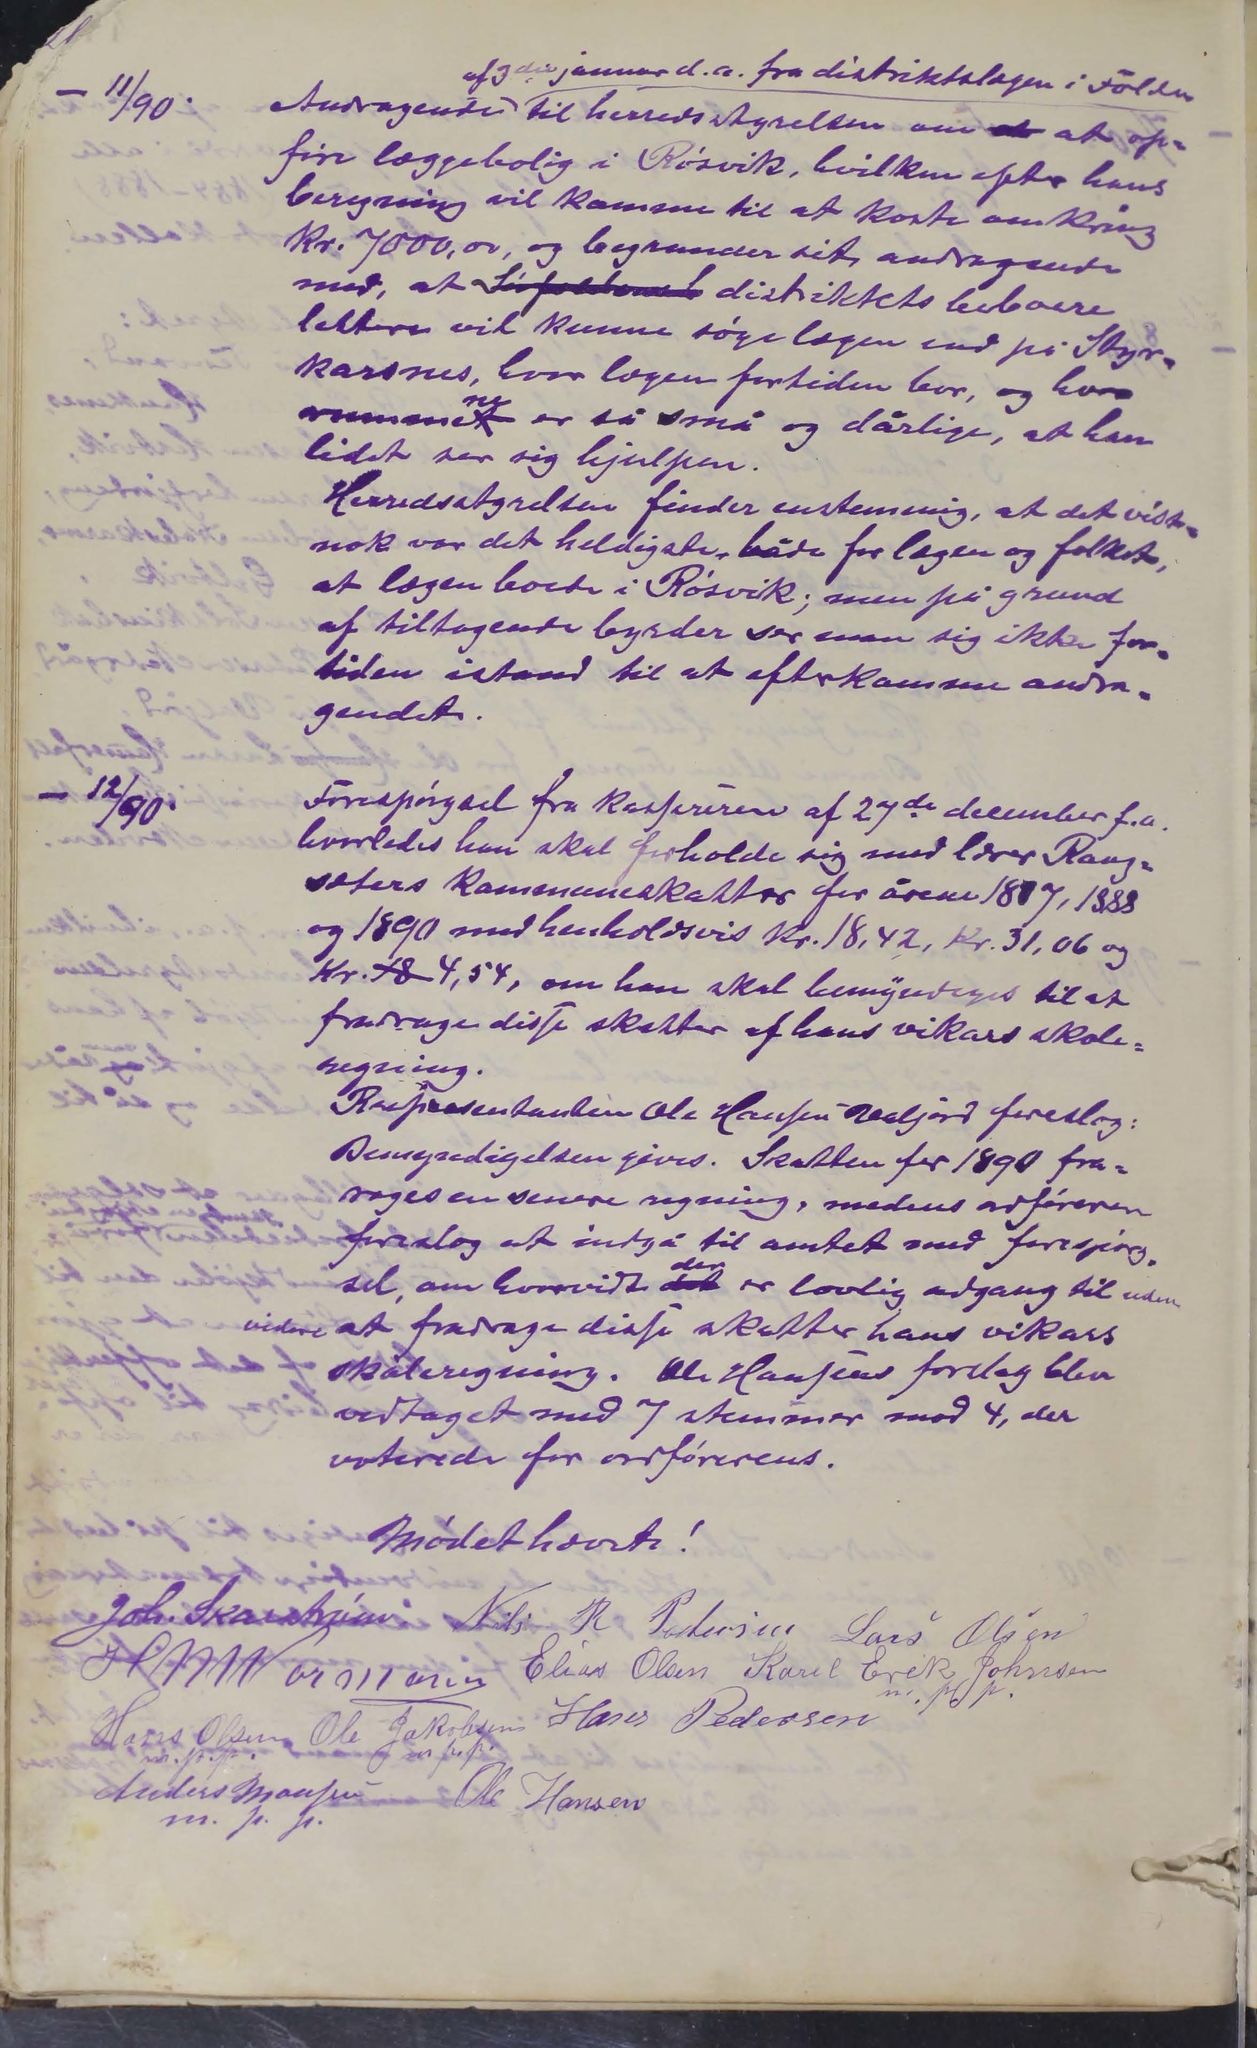 af 3die januar d. a. fra distriktslægen i Földen
– 11/90. Andragende til herredsstyrelsen om at op-
føre lægebolig i Rösvik, hvilken efter hans
beregning vil komme til at koste omkring
Kr. 7000,00, og begrunder sit andragende
med, at distriktets beboere
lettere vil kunne søge lægen end på Styr-
karsnes, hvor lægen fortiden bor, og hvor
rummene er så små og dårlige, at han
lidet ser sig hjulpen.
Herredsstyrelsen finder enstemmig, at det vist-
nok var det heldigste, både for lægen og folket,
at lægen boede i Rösvik; men på grund
af tiltagende byrder ser man sig ikke for-
tiden istand til at efterkomme andra-
gendet.
– 12/90. Forespörgsel fra kassereren af 27de december f. a.
hvorledes han skal forholde sig med lærer Rang-
sæters kommuneskatter for årene 1887, 1888
og 1890 med henholdsvis Kr. 18,42, Kr. 31,06 og
Kr. 4,54, om han skal bemyndiges til at
fradrage disse skatter af hans vikars skole-
regning.
Repræsentanten Ole Hansen Valjord foreslog:
Bemyndigelsen gives. Skatten for 1890 fra-
drages en senere regning, medens ordføreren
foreslog at indgå til amtet med forespörg-
sel, om hvorvidt der er lovlig adgang til uden
videre at fradrage disse skatter hans vikars
skoleregning. Ole Hansens forslag blev
vedtaget med 7 stemmer mod 4, der
voterede for ordförerens.
Mödet hævet!
Joh. Skarstrøm Nils R Pedersen Lars Olsen
HMNormann Elias Olsen Karel Erik Johnsen
m. p. p.
Hans Olsen Ole Jakobsen Hans Pedersen
m. p. p. m. p. p.
Anders Monsen Ole Hansen
m. p. p.